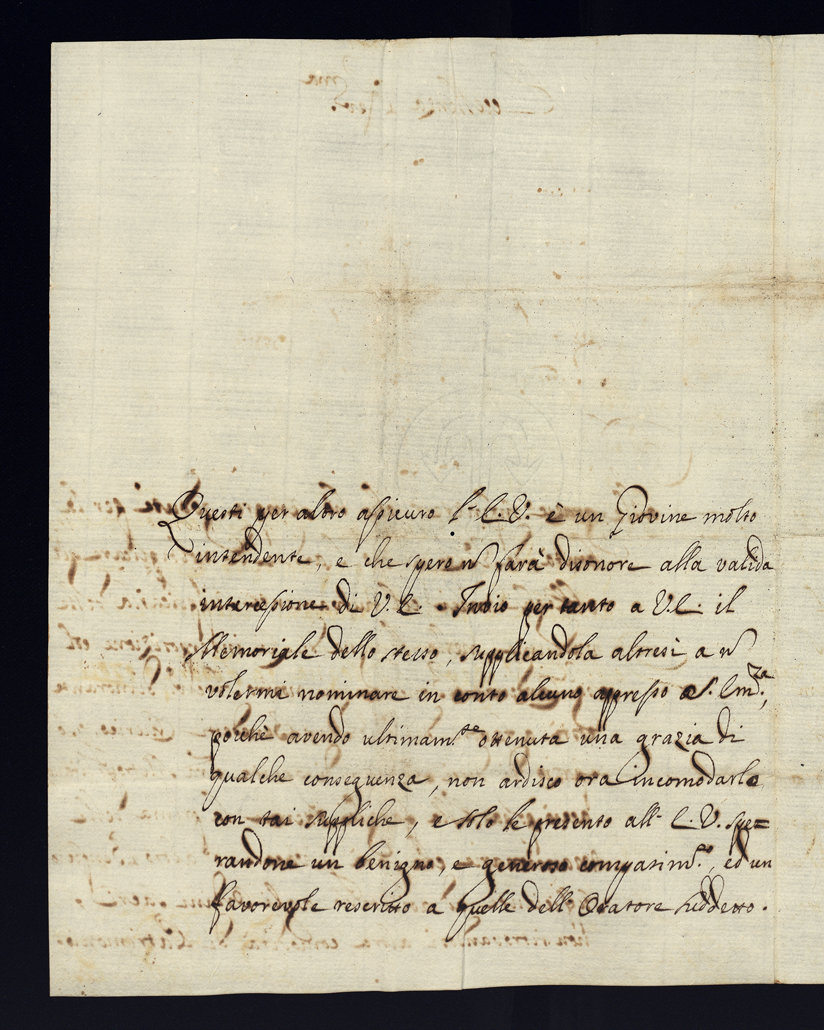 Questi per altro assicuro l'E.V. è un Giovine molto
intendente, e che spero nō farà disonore alla valida
intercessione di V.E. Invio per tanto a V.E. il
Memoriale dello stesso, supplicandola altresì a nō
volermi nominare in conto alcuno appresso a S. Em.za,
poichè avendo ultimam.te ottenuta una grazia di
qualche conseguenza, non ardisco ora incomodarlo
con tai suppliche, e solo le presento all' E.V. spe=
randone un benigno, e generoso compatim.to, ed un
favorevole rescritto a quelle dell' Oratore suddetto.